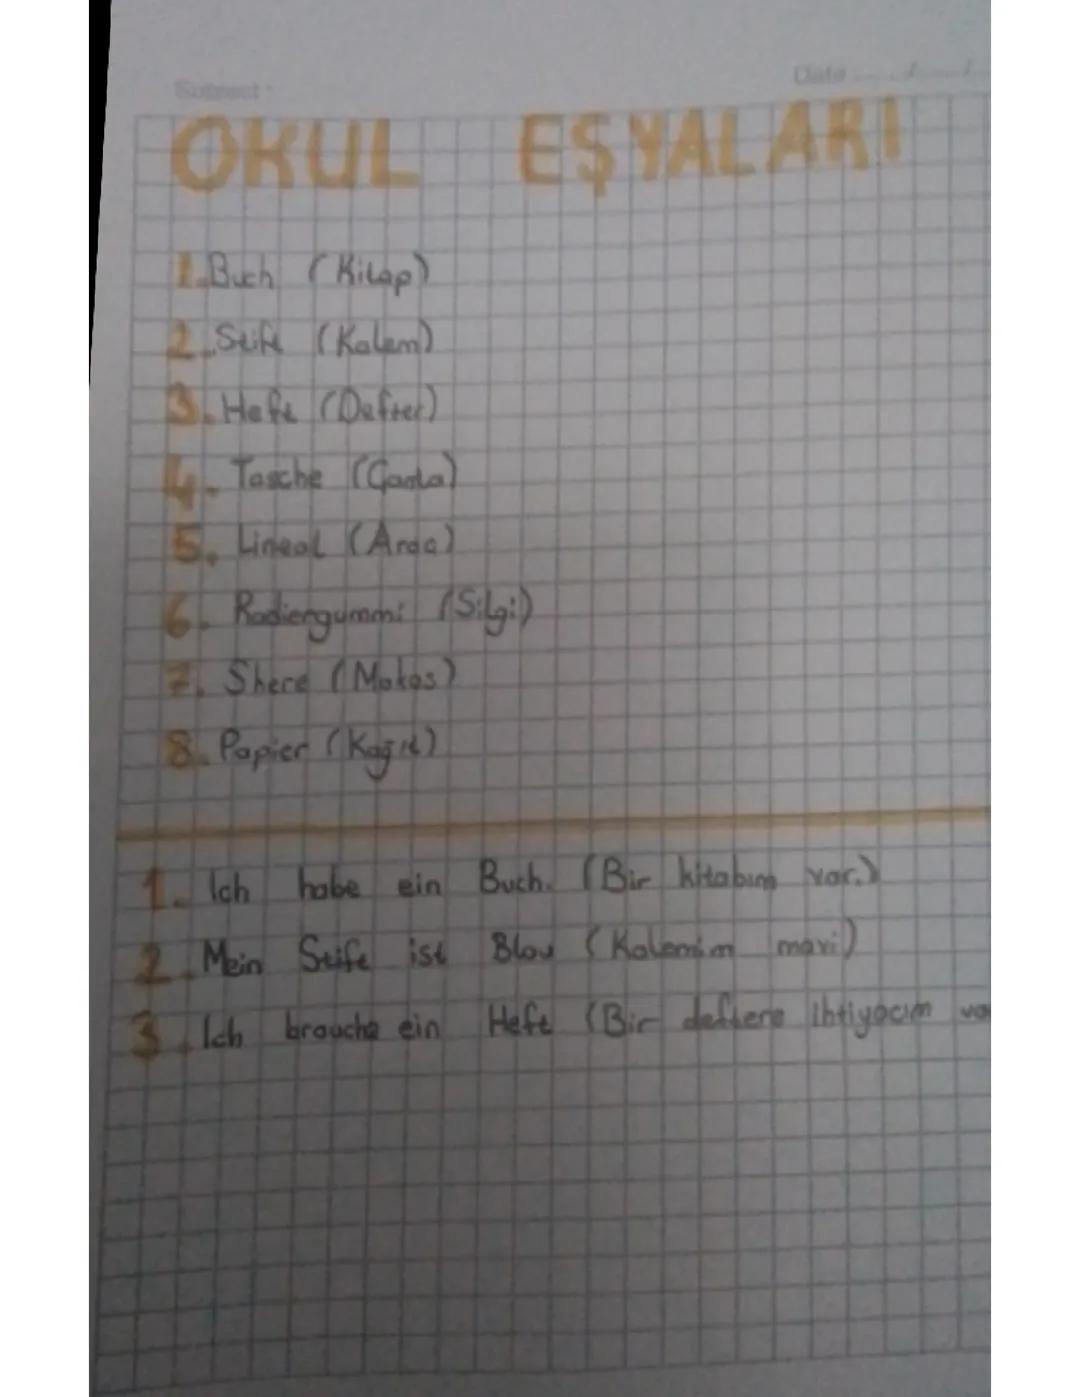 Subject:
Date ..../..../....
OKUL EŞYALARI
1. Buch (Kitap)
2. Stift (Kalem)
3. Heft (Defter)
4. Tasche (Çanta)
5. Lineal (Arda)
6. Radiergummi (Silgi)
7. Shere (Makas)
8. Papier (Kağıt)
1. Ich habe ein Buch. (Bir kitabım var.)
2. Mein Stift ist Blau (Kalemim mavi)
3. Ich brauche ein Heft (Bir deftere ihtiyacım va